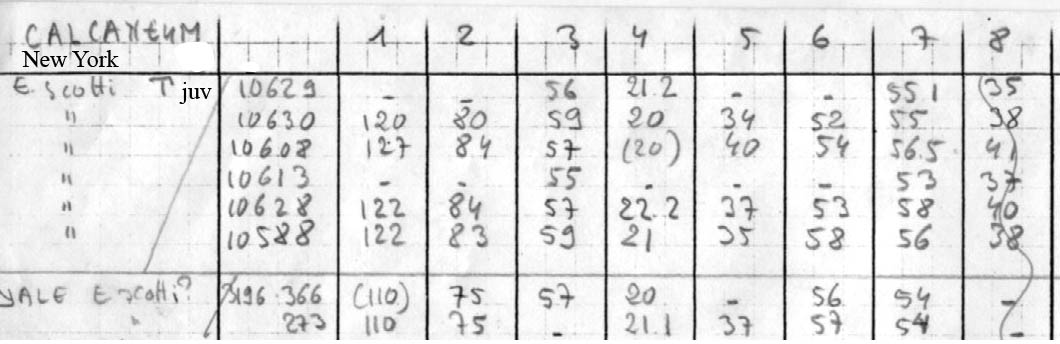 CALCANEUM 1 2 3 4 5 6 7 8
New York
E. scotti T juv 10629 - - 56 21.2 - - 55.1 (35
" 10630 120 80 59 20 34 52 55 38
" 10608 127 84 57 (20) 40 54 56.5 41
" 10613 - - 55 - - - 53 37
" 10628 122 84 57 22.2 37 53 58 40
" 10588 122 83 59 21 35 58 56 38
YALE E scotti? 196.366 (110) 75 57 20 - 56 54 -
" 273 110 75 - 21.1 37 57 54 -